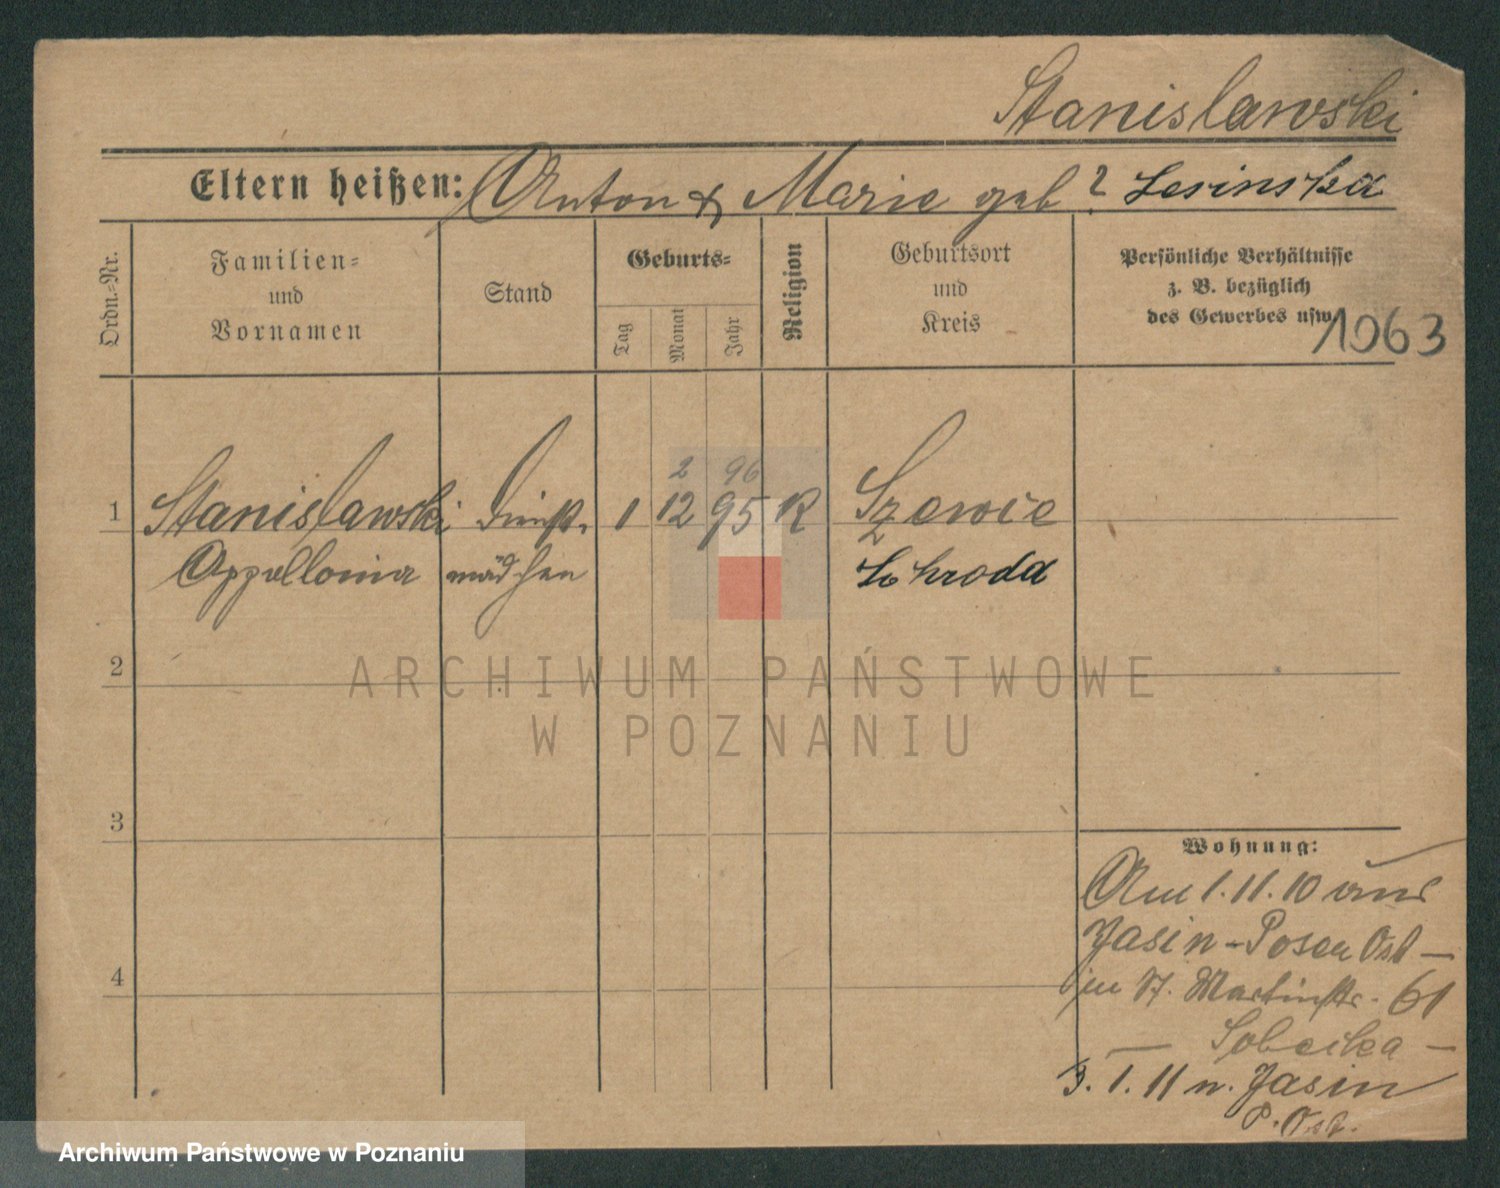 Stanislawski
Eltern heißen: Anton & Marie geb ? Lesinska
Ordn.-Nr.
Familien- und Vornamen
Stand
Geburts-
Tag
Monat
Jahr
Religion
Geburtsort und Kreis
Persönliche Verhältnisse
z. B. bezüglich
des Gewerbes usw.
1063
2 96
1 Stanislawski Dienst- 1 12 95 K Szewie
Appollonia mädchen Schroda
2
ARCHIWUM PAŃSTWOWE
W POZNANIU
3
4
Wohnung:
Am 1.11.10 aus
Jasin - Posen Ost -
in St. Martinstr. 61
— Sobecka —
3. 1. 11 n. Jasin
P. Ost.
Archiwum Państwowe w Poznaniu